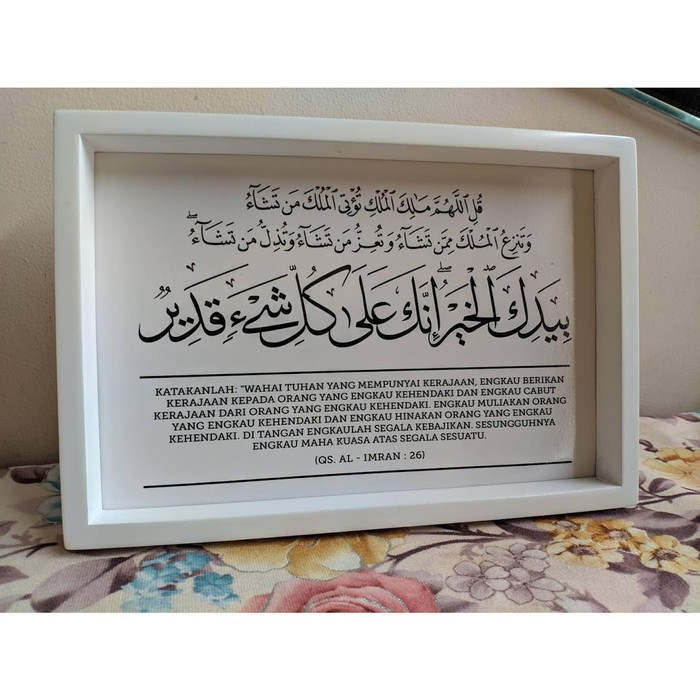 قُلِ ٱللَّهُمَّ مَـٰلِكَ ٱلْمُلْكِ تُؤْتِى ٱلْمُلْكَ مَن تَشَآءُ
وَتَنزِعُ ٱلْمُلْكَ مِمَّن تَشَآءُ وَتُعِزُّ مَن تَشَآءُ وَتُذِلُّ مَن تَشَآءُ ۖ
بِيَدِكَ ٱلْخَيْرُ ۖ إِنَّكَ عَلَىٰ كُلِّ شَىْءٍ قَدِيرٌ
KATAKANLAH: "WAHAI TUHAN YANG MEMPUNYAI KERAJAAN, ENGKAU BERIKAN
KERAJAAN KEPADA ORANG YANG ENGKAU KEHENDAKI DAN ENGKAU CABUT
KERAJAAN DARI ORANG YANG ENGKAU KEHENDAKI. ENGKAU MULIAKAN ORANG
YANG ENGKAU KEHENDAKI DAN ENGKAU HINAKAN ORANG YANG ENGKAU
KEHENDAKI. DI TANGAN ENGKAULAH SEGALA KEBAJIKAN. SESUNGGUHNYA
ENGKAU MAHA KUASA ATAS SEGALA SESUATU.
(QS. AL - IMRAN : 26)